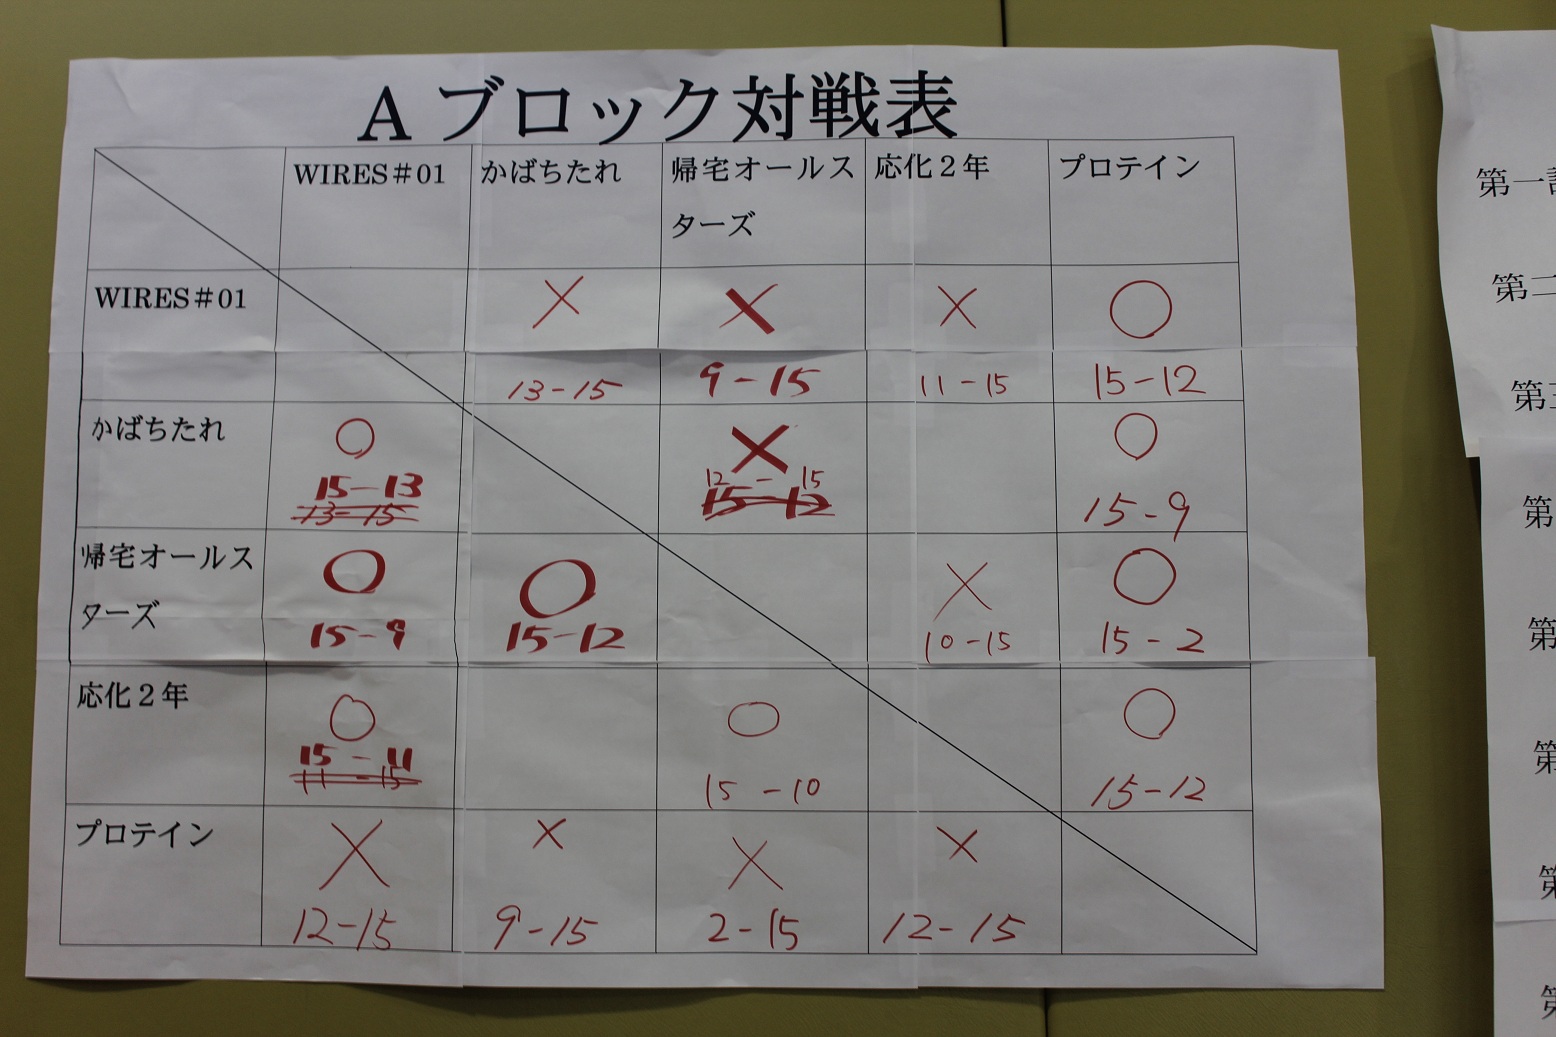 Aブロック対戦表
WIRES#01 かばちたれ 帰宅オールス 応化2年 プロテイン
ターズ
WIRES#01 × × × ○
13-15 9-15 11-15 15-12
かばちたれ ○ × ○
15-13 12-15
13-15 15-12 15-9
帰宅オールス ○ ○ × ○
ターズ 15-9 15-12 10-15 15-2
応化2年 ○ ○ ○
15-11
11-15 15-10 15-12
プロテイン × × × ×
12-15 9-15 2-15 12-15
第一
第二
第三
第
第
第
第
第